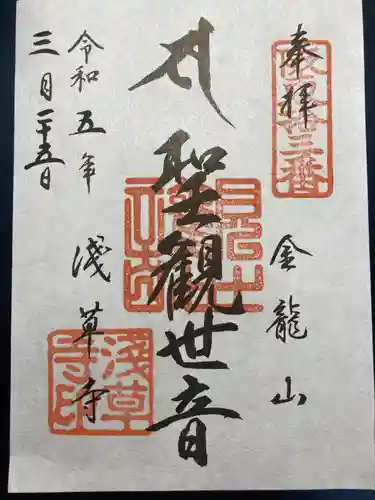 奉拝
金龍山
聖観世音
浅草寺
令和五年
三月二十五日
浅草寺印